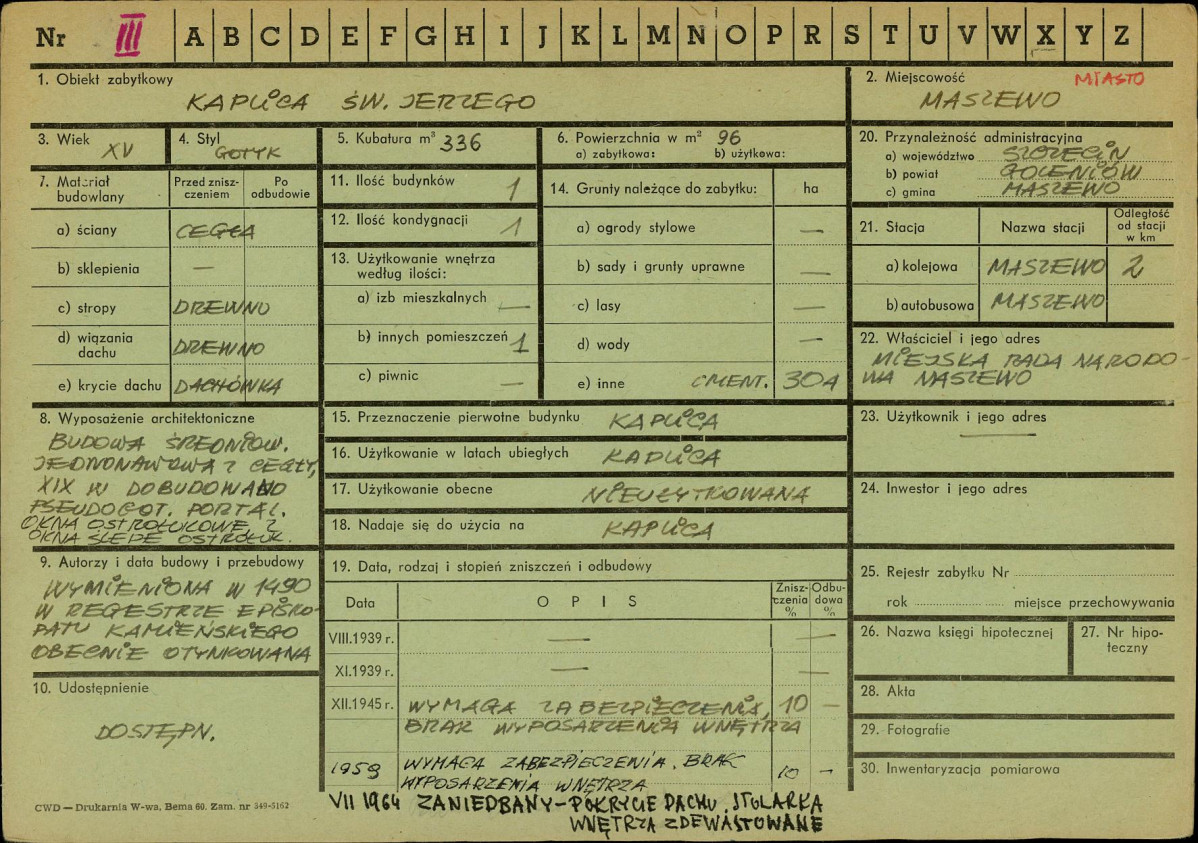 Nr III A B C D E F G H I J K L M N O P R S T U V W X Y Z
1. Obiekt zabytkowy
KAPLICA ŚW. JERZEGO
2. Miejscowość MIASTO
MASZEWO
3. Wiek
XV
4. Styl
GOTYK
5. Kubatura m³ 336
6. Powierzchnia w m² 96
a) zabytkowa: b) użytkowa:
20. Przynależność administracyjna
a) województwo SZCZECIN
b) powiat GOLENIÓW
c) gmina MASZEWO
7. Materiał budowlany
Przed zniszczeniem
Po odbudowie
a) ściany CEGŁA
b) sklepienia —
c) stropy DREWNO
d) wiązania dachu DREWNO
e) krycie dachu DACHÓWKA
11. Ilość budynków 1
12. Ilość kondygnacji 1
13. Użytkowanie wnętrza
według ilości:
a) izb mieszkalnych —
b) innych pomieszczeń 1
c) piwnic —
14. Grunty należące do zabytku: ha
a) ogrody stylowe —
b) sady i grunty uprawne —
c) lasy —
d) wody —
e) inne CMENT. 30A
21. Stacja Nazwa stacji Odległość od stacji w km
a) kolejowa MASZEWO 2
b) autobusowa MASZEWO
22. Właściciel i jego adres
MIEJSKA RADA NARODO-
WA MASZEWO
8. Wyposażenie architektoniczne
BUDOWA ŚREDNIOW.
JEDNONAWOWA Z CEGŁY,
XIX W DOBUDOWANO
PSEUDOGOT. PORTAL.
OKNA OSTROŁUKOWE, Z
OKNA ŚLEPE OSTROŁUK.
15. Przeznaczenie pierwotne budynku KAPLICA
16. Użytkowanie w latach ubiegłych KAPLICA
17. Użytkowanie obecne NIEUŻYTKOWANA
18. Nadaje się do użycia na KAPLICA
23. Użytkownik i jego adres
—
24. Inwestor i jego adres
9. Autorzy i data budowy i przebudowy
WYMIENIONA W 1490
W REGESTRZE EPISKO-
PATU KAMIEŃSKIEGO
OBECNIE OTYNKOWANA
10. Udostępnienie
DOSTĘPN.
19. Data, rodzaj i stopień zniszczeń i odbudowy
Data OPIS Zniszczenia % Odbudowa %
VIII.1939 r. — —
XI.1939 r. — —
XII.1945 r. WYMAGA ZABEZPIECZENIA, 10 —
BRAK WYPOSARZENIA WNĘTRZA
1959 WYMAGA ZABEZPIECZENIA. BRAK
WYPOSARZENIA WNĘTRZA 10 —
VII 1964 ZANIEDBANY - POKRYCIE DACHU, STOLARKA
WNĘTRZA ZDEWASTOWANE
25. Rejestr zabytku Nr
rok miejsce przechowywania
26. Nazwa księgi hipotecznej
27. Nr hipoteczny
28. Akta
29. Fotografie
30. Inwentaryzacja pomiarowa
CWD — Drukarnia W-wa, Bema 60. Zam. nr 349-5162